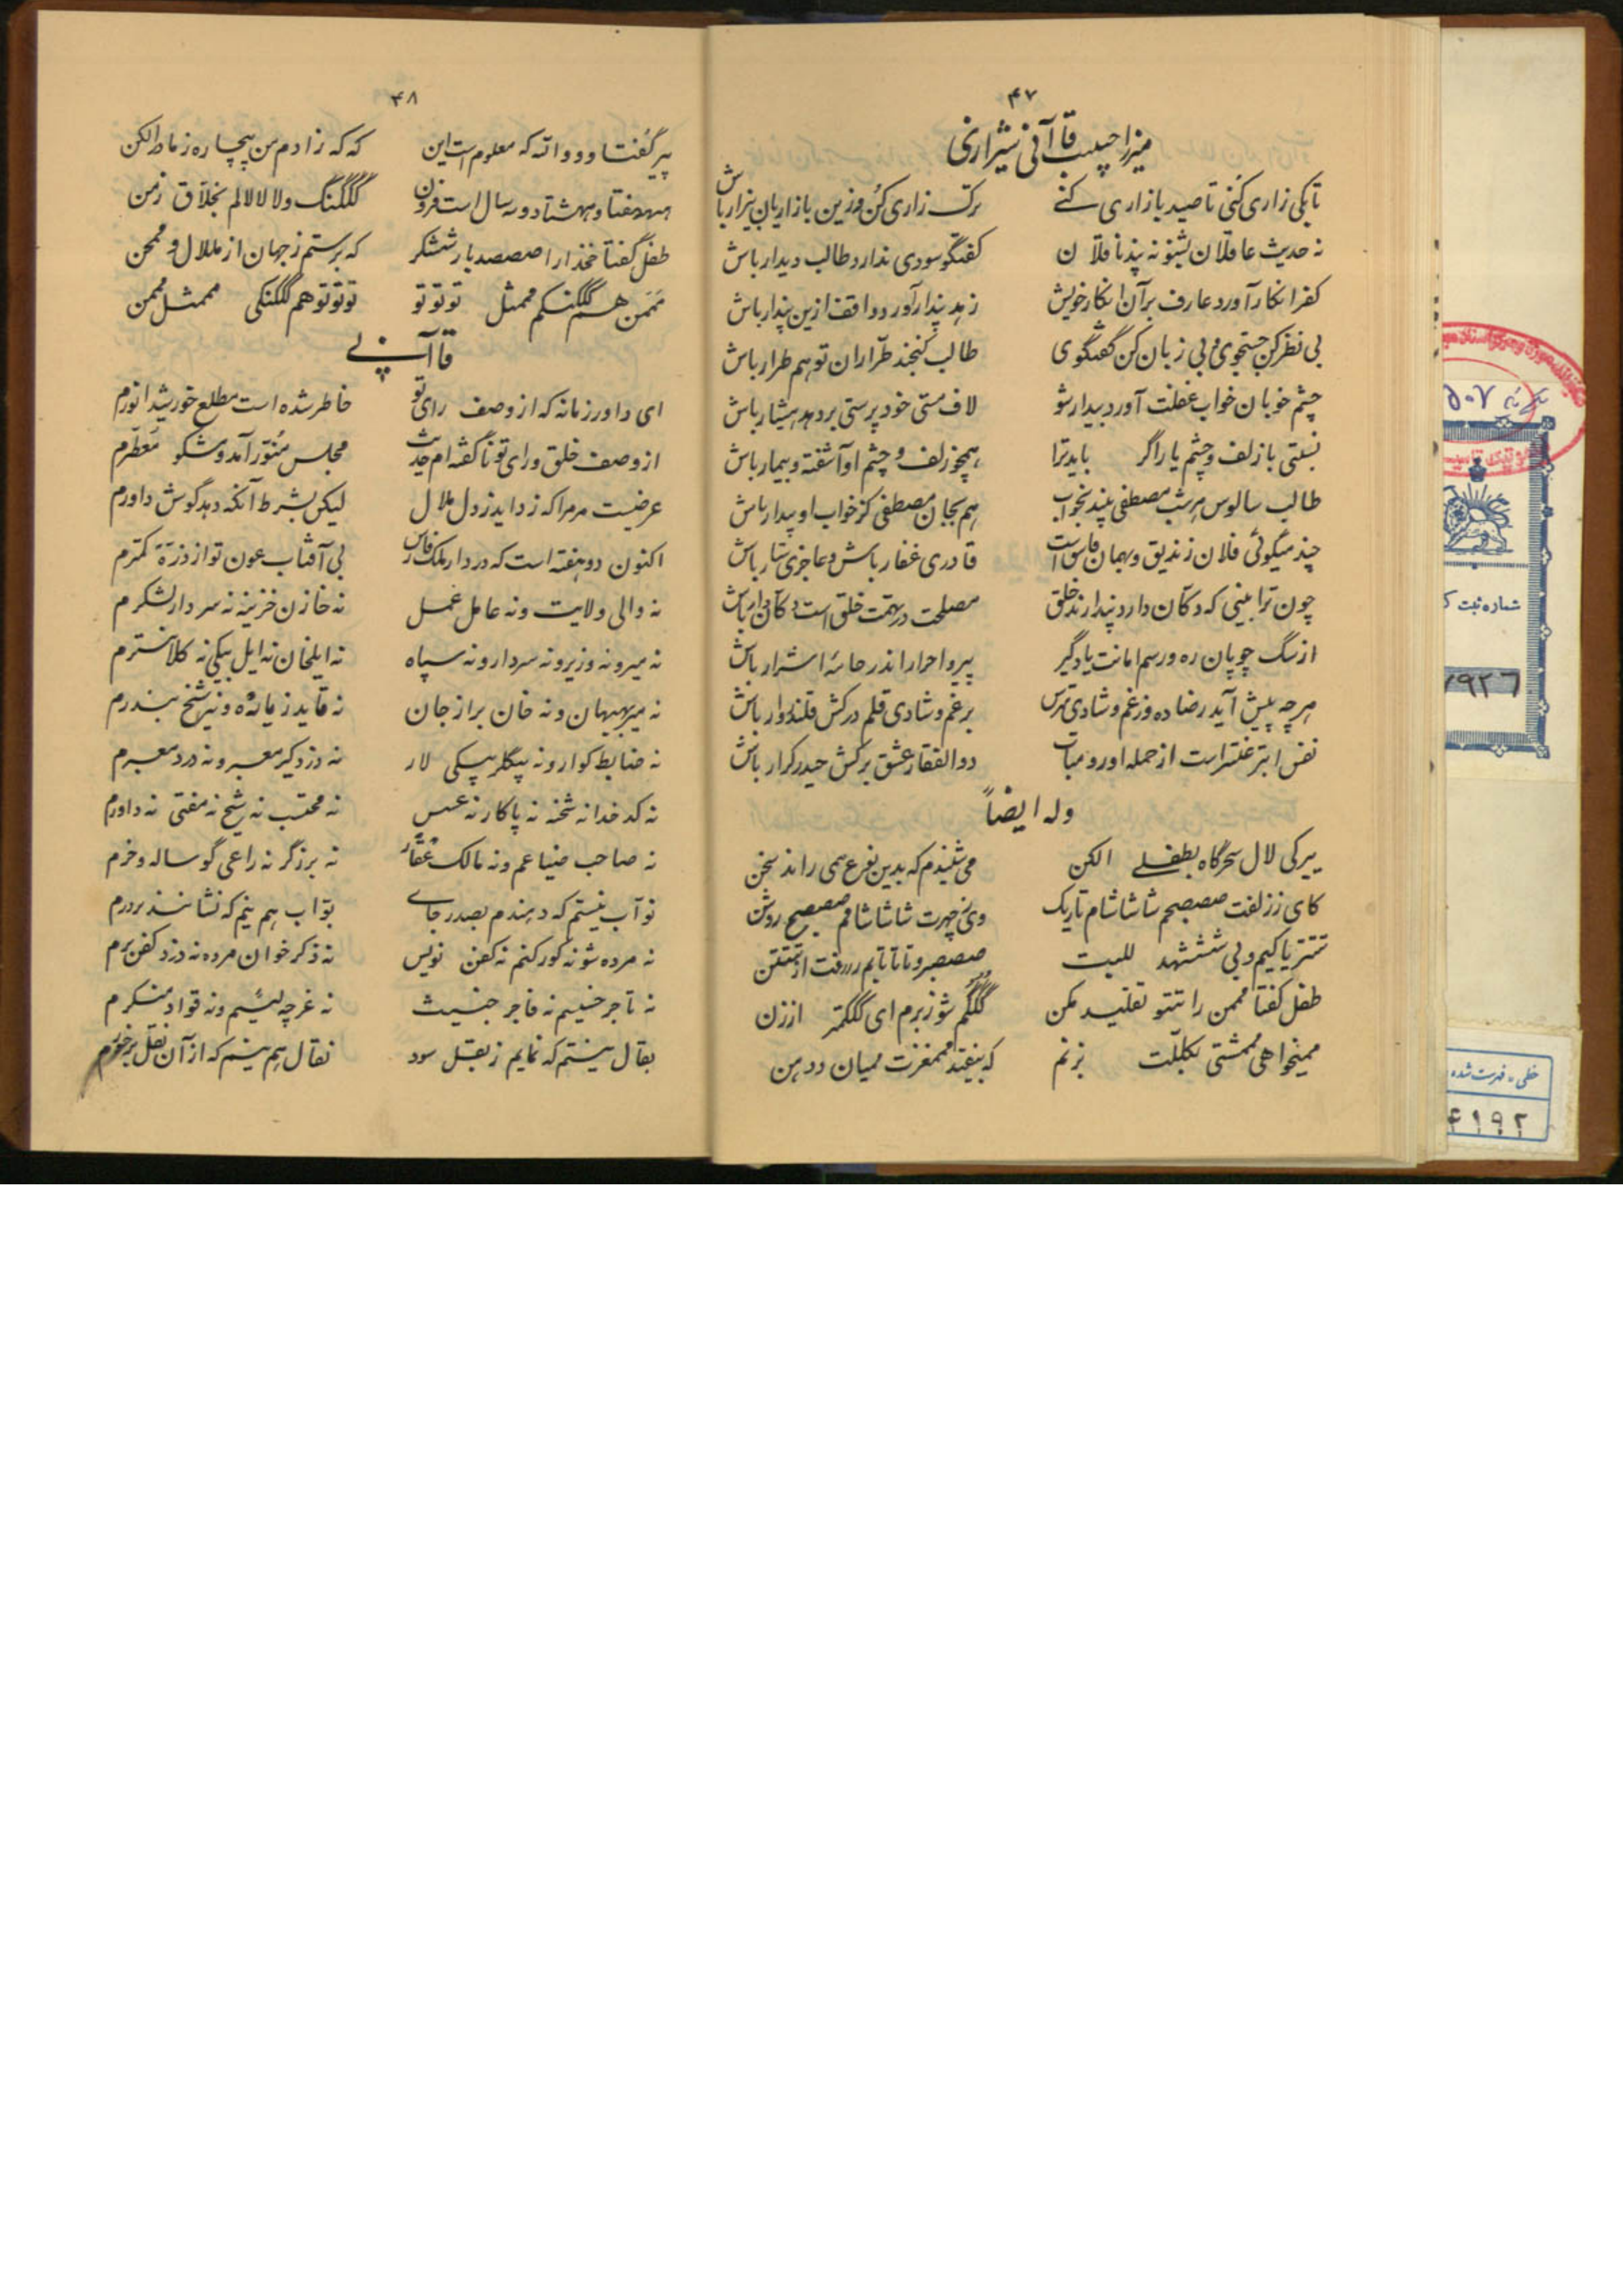 ۴۷
میرزا حبیب قاآنی شیرازی
تا بکی زاری کنی تا صید بازاری کنے ترک زاری کن وزین بازاریان بیزار باش
نه حدیث عاقلان بشنو نه پند ناقلان گفتگو سودی ندارد طالب دیدار باش
کفر انکار آورد عارف برآن انکار خویش زهد پندار آورد واقف ازین پندار باش
بی نظر کن جستجوی و بی زبان کن گفتگوی طالب گنجند طرّاران تو هم طرار باش
چشم خوبان خواب غفلت آورد بیدار شو لاف مستی خودپرستی بردهد هشیار باش
نسبتی با زلف و چشم یار اگر باید ترا همچو زلف و چشم او آشفته و بیمار باش
طالب سالوس هر شب مصطفی بیند بخواب هم بجان مصطفی کز خواب او بیدار باش
چند میگوئی فلان زندیق و بهمان فاسق است قادری غفار باش و عاجزی ستار باش
چون ترا بینی که دکان دارد پندارند خلق مصلحت در تهمت خلق است دکان دار باش
از سگ چوپان ره و رسم امانت یاد گیر پیرو احرار اندر جامهٔ اشرار باش
هرچه پیش آید رضا ده وز غم و شادی مترس بر غم و شادی قلم درکش قلندروار باش
نفس ابتر عنتر است از حمله او رو متاب ذوالفقار عشق برکش حیدر کرار باش
وله ایضاً
پیرکی لال سحرگاه بطفلے الکن می شنیدم که بدین نوع همی راند سخن
کای ززلفت صصصبحم شاشاشام تاریک وی زچهرت شاشاشامم صصصبح روشن
تتتریاکیم و بی شششهد للبت صصصبر و تاتاتابم رررفت از تتتن
طفل گفتا مممن را تتتو تقلید مکن گگگم شو زبرم ای گگگمتر از زن
میخواهی مممشتی بککلّت بزنم که بیفتد مممغزت ممیان ددهن
۴۸
پیر گفتا وووالله که معلوم است این که که زادم من بیچاره زمادر الکن
هههفتاد و هههشتاد و سه سال است فزون گگگنگ و لالالالم بخلاق زمن
طفل گفتا خخدا را صصصد بار ششکر که برستم زجهان از مللال و ممحن
مَمَمن هم گگگنگم مممثل توتوتو توتوتو هم گگگنگی مممثل مممن
قاآنے
ای داور زمانه که از وصف رای تو خاطر شده است مطلع خورشید انورم
از وصف خلق و رای تو ناگفته ام حدیث مجلس منوّر آمد و مشکو معطّرم
عرضیست مر مرا که زداید زدل ملال لیکن بشرط آنکه دهد گوش داورم
اکنون دو هفته است که در دار ملک فارس بی آفتاب عون تو از ذرّة کمترم
نه والی ولایت و نه عامل عمل نه خازن خزینه نه سردار لشکرم
نه میر و نه وزیر و نه سردار و نه سپاه نه ایلخان نه ایل بیگی نه کلانترم
نه میر بهبهان و نه خان برازجان نه قاید زیاده و نه شیخ بندرم
نه ضابط کوار و نه بیگلربیکی لار نه دزدگیر معبر و نه دزد معبرم
نه کدخدا نه شحنه نه پاکار نه عسس نه محتسب نه شیخ نه مفتی نه داورم
نه صاحب ضیاعم و نه مالک عقار نه برزگر نه راعی گوساله و خرم
نوّاب نیستم که دهندم بصدر جاے بوّاب هم نیم که نشانند بر درم
نه مرده شو نه گورکنم نه کفن نویس نه ذکر خوان مرده نه دزد کفن برم
نه تاجر خسیسم نه فاجر خبیث نه غرچه لئیم و نه قوّاد منکرم
بقال نیستم که نمایم زبقل سود نقال هم نیم که از آن نقل برخورم
شماره ثبت
۷۹۲۶
خطی، فهرست شده
۴۱۹۲